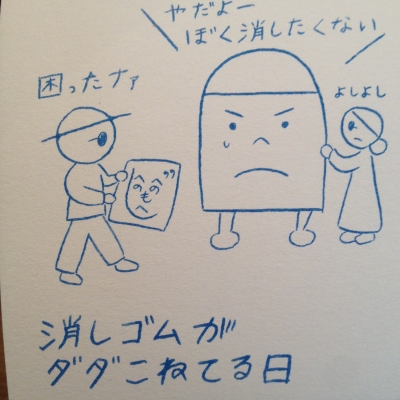 やだよー
ぼく消したくない
困ったナァ
よしよし
へのへのもへじ
消しゴムが
ダダこねてる日